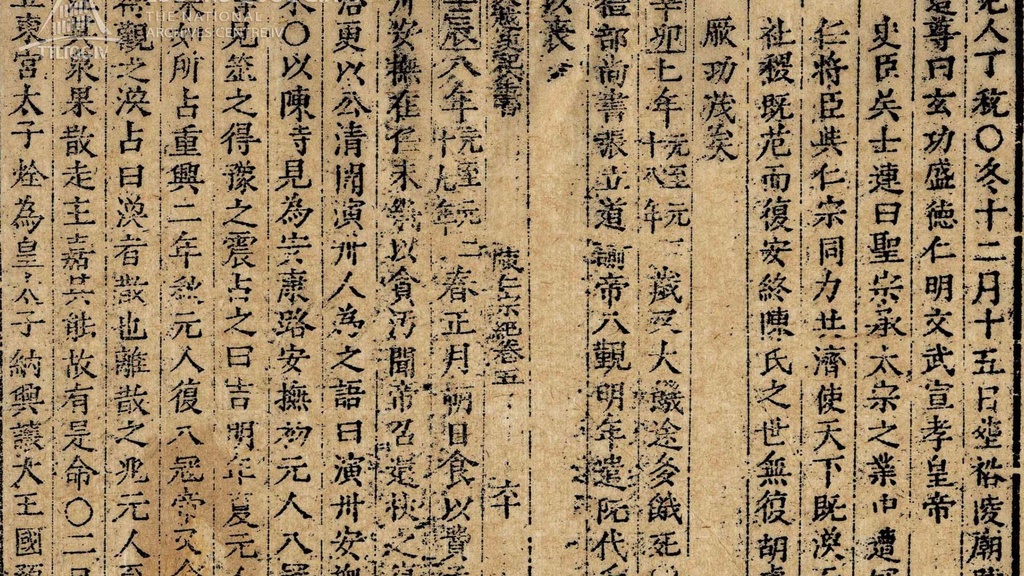 人丁稅〇冬十二月十五日塟裕陵廟
尊曰玄功盛德仁明文武宣孝皇帝
史臣吳士連曰聖宗承太宗之業中遭
仁將臣與仁宗同力共濟使天下既渙
社稷既危而復安終陳氏之世無復胡
厥功茂矣
辛卯七年元至元二十八年歲又大饑途多餓死
禮部尚書張立道諭帝入覲明年遣阮代
以喪
大越史記全書 陳仁宗紀卷五 六十
壬辰八年元至元二十九年春正月朔日食以費
州安撫在任未幾以貪汚聞帝召還杖之
治更以公清聞演州人為之語曰演州安撫
〇以陳寺見為天康路安撫初元人入冦
見筮之得豫之震占之曰吉明年夏元
如所占重興二年元人復入冦帝又令
觀之渙占曰渙者散也離散之兆元人
眾果散走主嘉其能故有是命〇二
立東宮太子烇為皇太子納興讓大王國
THE NATIONAL
ARCHIVES CENTRE IV